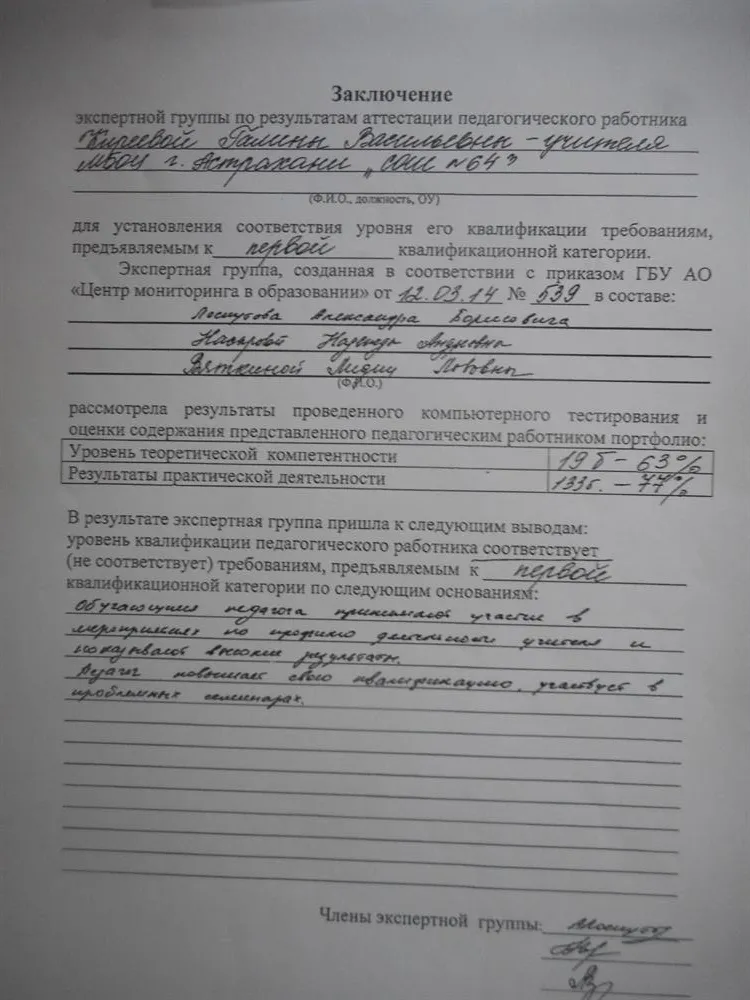 Заключение
экспертной группы по результатам аттестации педагогического работника
Киреевой Галины Васильевны - учителя
МБОУ г. Астрахани „СОШ №64"
(Ф.И.О., должность, ОУ)
для установления соответствия уровня его квалификации требованиям,
предъявляемым к первой квалификационной категории.
Экспертная группа, созданная в соответствии с приказом ГБУ АО
«Центр мониторинга в образовании» от 12.03.14 № 539 в составе:
Лоскутова Александра Борисовича
Надежды
Вяткиной Лидии Львовны
(Ф.И.О.)
рассмотрела результаты проведенного компьютерного тестирования и
оценки содержания представленного педагогическим работником портфолио:
Уровень теоретической компетентности 19 б - 63%
Результаты практической деятельности 133б. - 77%
В результате экспертная группа пришла к следующим выводам:
уровень квалификации педагогического работника соответствует
(не соответствует) требованиям, предъявляемым к первой
квалификационной категории по следующим основаниям:
Обучающиеся педагога принимают участие в
мероприятиях по профилю деятельности учителя и
показывают высокие результаты.
Педагог повышает свою квалификацию, участвует в
проблемных семинарах.
Члены экспертной группы: